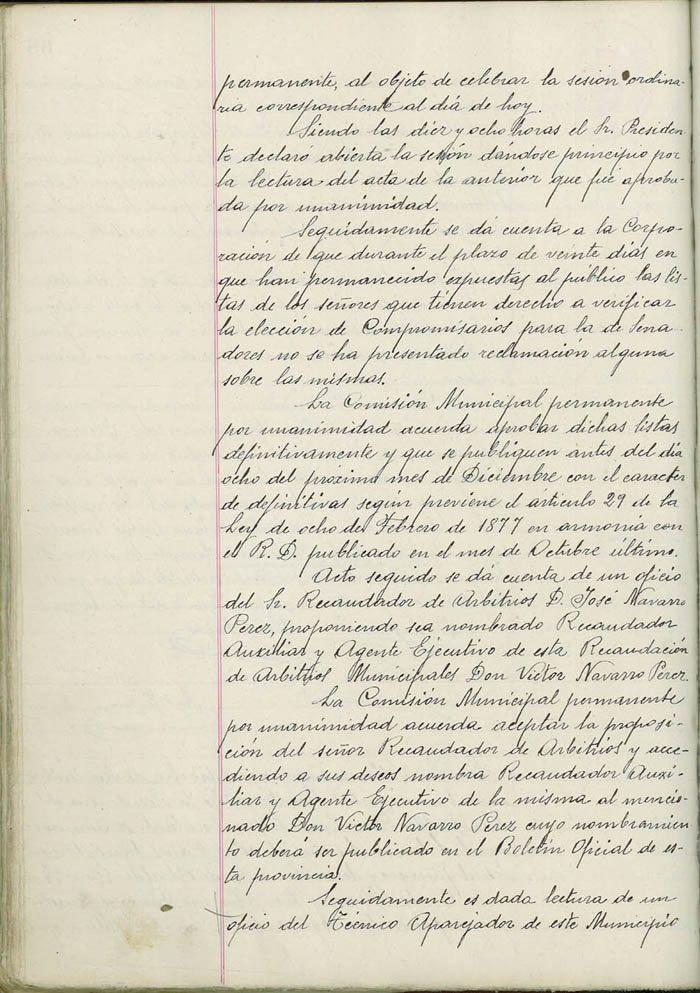 permanente, al objeto de celebrar la sesión ordina-
ria correspondiente al día de hoy.
Siendo las diez y ocho horas el Sr. Presiden-
te declaró abierta la sesión dándose principio por
la lectura del acta de la anterior que fué aproba-
da por unanimidad.
Seguidamente se dá cuenta a la Corpo-
ración de que durante el plazo de veinte dias en
que han permanecido expuestas al público las lis-
tas de los señores que tienen derecho a verificar
la elección de Compromisarios para la de Sena-
dores no se ha presentado reclamación alguna
sobre las mismas.
La Comisión Municipal permanente
por unanimidad acuerda aprobar dichas listas
definitivamente y que se publiquen antes del día
ocho del próximo mes de Diciembre con el caracter
de definitivas según previene el articulo 29 de la
Ley de ocho de Febrero de 1877 en armonía con
el R. D. publicado en el mes de Octubre último.
Acto seguido se dá cuenta de un oficio
del Sr. Recaudador de Arbitrios D. José Navarro
Perez, proponiendo sea nombrado Recaudador
Auxiliar y Agente Ejecutivo de esta Recaudación
de Arbitrios Municipales Don Victor Navarro Perez.
La Comisión Municipal permanente
por unanimidad acuerda aceptar la proposi-
ción del señor Recaudador de Arbitrios y acce-
diendo a sus deseos nombra Recaudador Auxi-
liar y Agente Ejecutivo de la misma al mencio-
nado Don Victor Navarro Perez cuyo nombramien-
to deberá ser publicado en el Boletín Oficial de es-
ta provincia.
Seguidamente es dada lectura de un
oficio del Técnico Aparejador de este Municipio